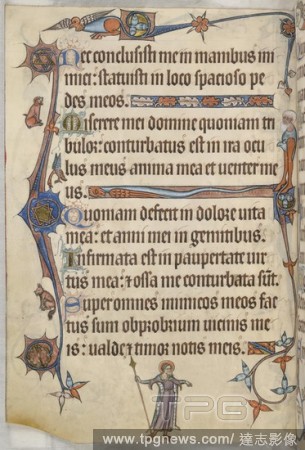 Nec conclusisti me in manibus ini
mici: statuisti in loco spacioso pe
des meos.
Miserere mei domine quoniam tri
bulor: conturbatus est in ira ocu
lus meus anima mea et venter me
us.
Quoniam defecit in dolore vita
mea: et anni mei in gemitibus.
Infirmata est in paupertate vir
tus mea: ⁊ ossa mea conturbata sūt.
Super omnes inimicos meos fac
tus sum obprobrium vicinis me
is: valde ⁊ timor notis meis.
TPG
www.tpgnews.com/ 達志影像